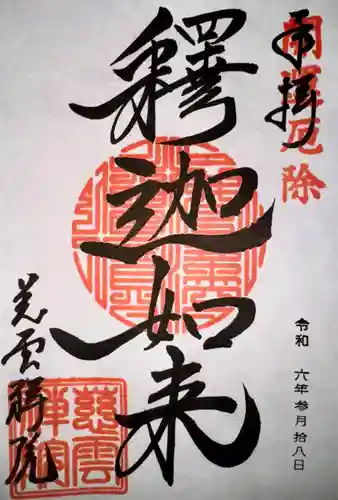 開運厄除
奉拝
釋迦如来
令和 六年参月拾八日
慈雲禅院
慈雲
禅院